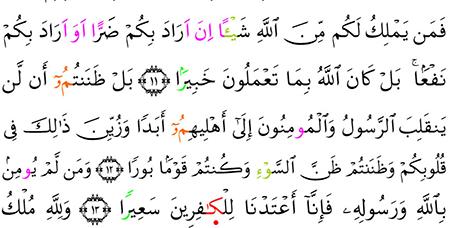 فَمَن يَمْلِكُ لَكُم مِّنَ ٱللَّهِ شَيْـًٔا إِنَ اَرَادَ بِكُمْ ضَرًّا اَوَ اَرَادَ بِكُمْ
نَفْعَۢا ۚ بَلْ كَانَ ٱللَّهُ بِمَا تَعْمَلُونَ خَبِيرًا ١١ بَلْ ظَنَنتُمُۥٓ أَن لَّن
يَنقَلِبَ ٱلرَّسُولُ وَٱلْمُومِنُونَ إِلَىٰٓ أَهْلِيهِمُۥٓ أَبَدًا وَزُيِّنَ ذَٰلِكَ فِى
قُلُوبِكُمْ وَظَنَنتُمْ ظَنَّ ٱلسَّوْءِ وَكُنتُمْ قَوْمَۢا بُورًا ١٢ وَمَن لَّمْ يُومِنۢ
بِٱللَّهِ وَرَسُولِهِۦ فَإِنَّآ أَعْتَدْنَا لِلْكَٰفِرِينَ سَعِيرًا ١٣ وَلِلَّهِ مُلْكُ